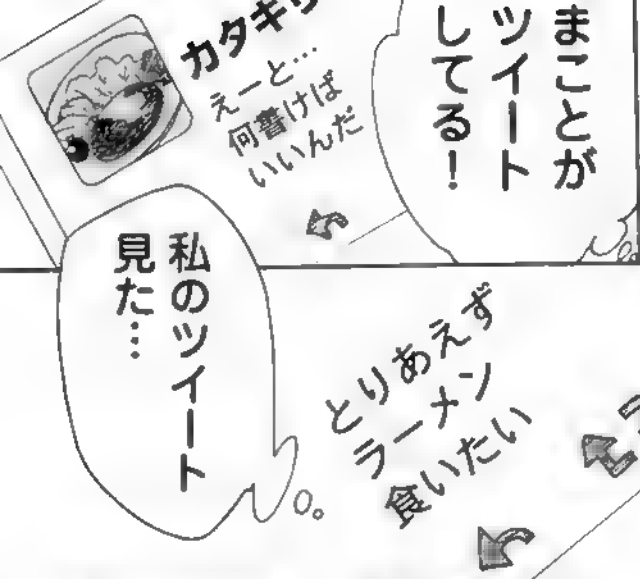 まことが
ツイート
してる！
えーと…
何書けば
いいんだ
私のツイート
見た…
とりあえず
ラーメン
食いたい